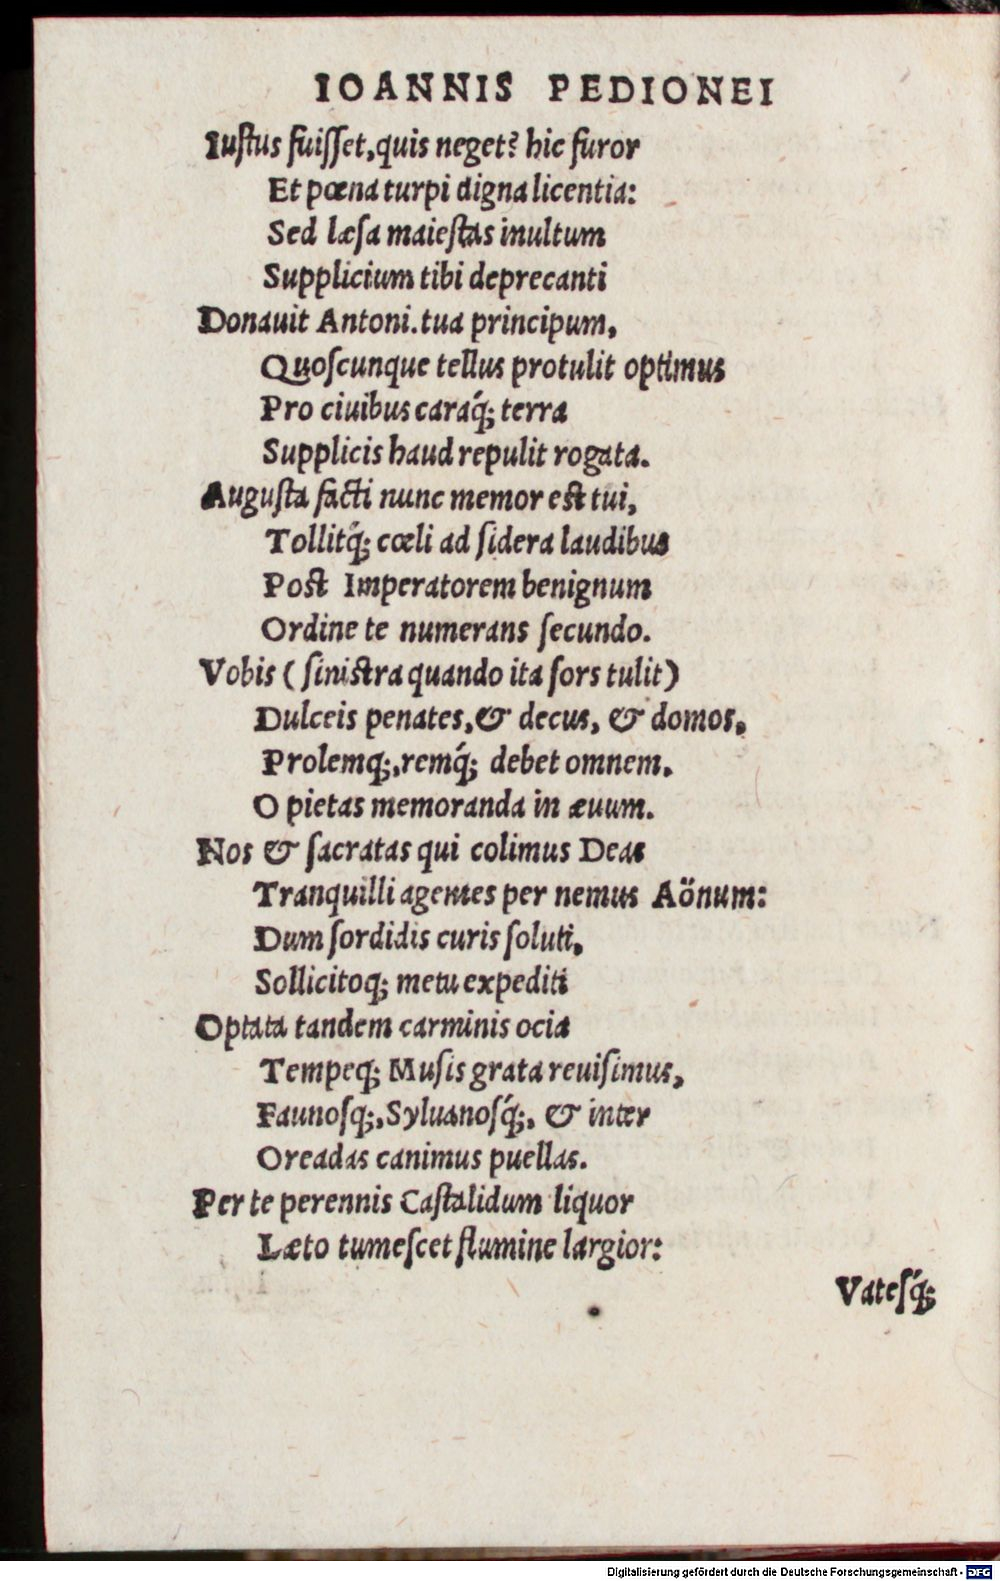 IOANNIS PEDIONEI
Iuſtus fuiſſet, quis neget? hic furor
Et pœna turpi digna licentia:
Sed læſa maieſtas inultum
Supplicium tibi deprecanti
Donauit Antoni. tua principum,
Quoſcunque tellus protulit optimus
Pro ciuibus caraq́; terra
Supplicis haud repulit rogata.
Auguſta facti nunc memor eſt tui,
Tollitq́; cœli ad ſidera laudibus
Poſt Imperatorem benignum
Ordine te numerans ſecundo.
Vobis (ſiniſtra quando ita ſors tulit)
Dulceis penates, & decus, & domos,
Prolemq;, remq́; debet omnem.
O pietas memoranda in æuum.
Nos & ſacratas qui colimus Deas
Tranquilli agentes per nemus Aönum:
Dum ſordidis curis ſoluti,
Sollicitoq; metu expediti
Optata tandem carminis ocia
Tempeq; Muſis grata reuiſimus,
Faunoſq;, Syluanoſq́;, & inter
Oreadas canimus puellas.
Per te perennis Caſtalidum liquor
Læto tumeſcet flumine largior:
Vateſq́;
Digitalisierung gefördert durch die Deutsche Forschungsgemeinschaft - DFG